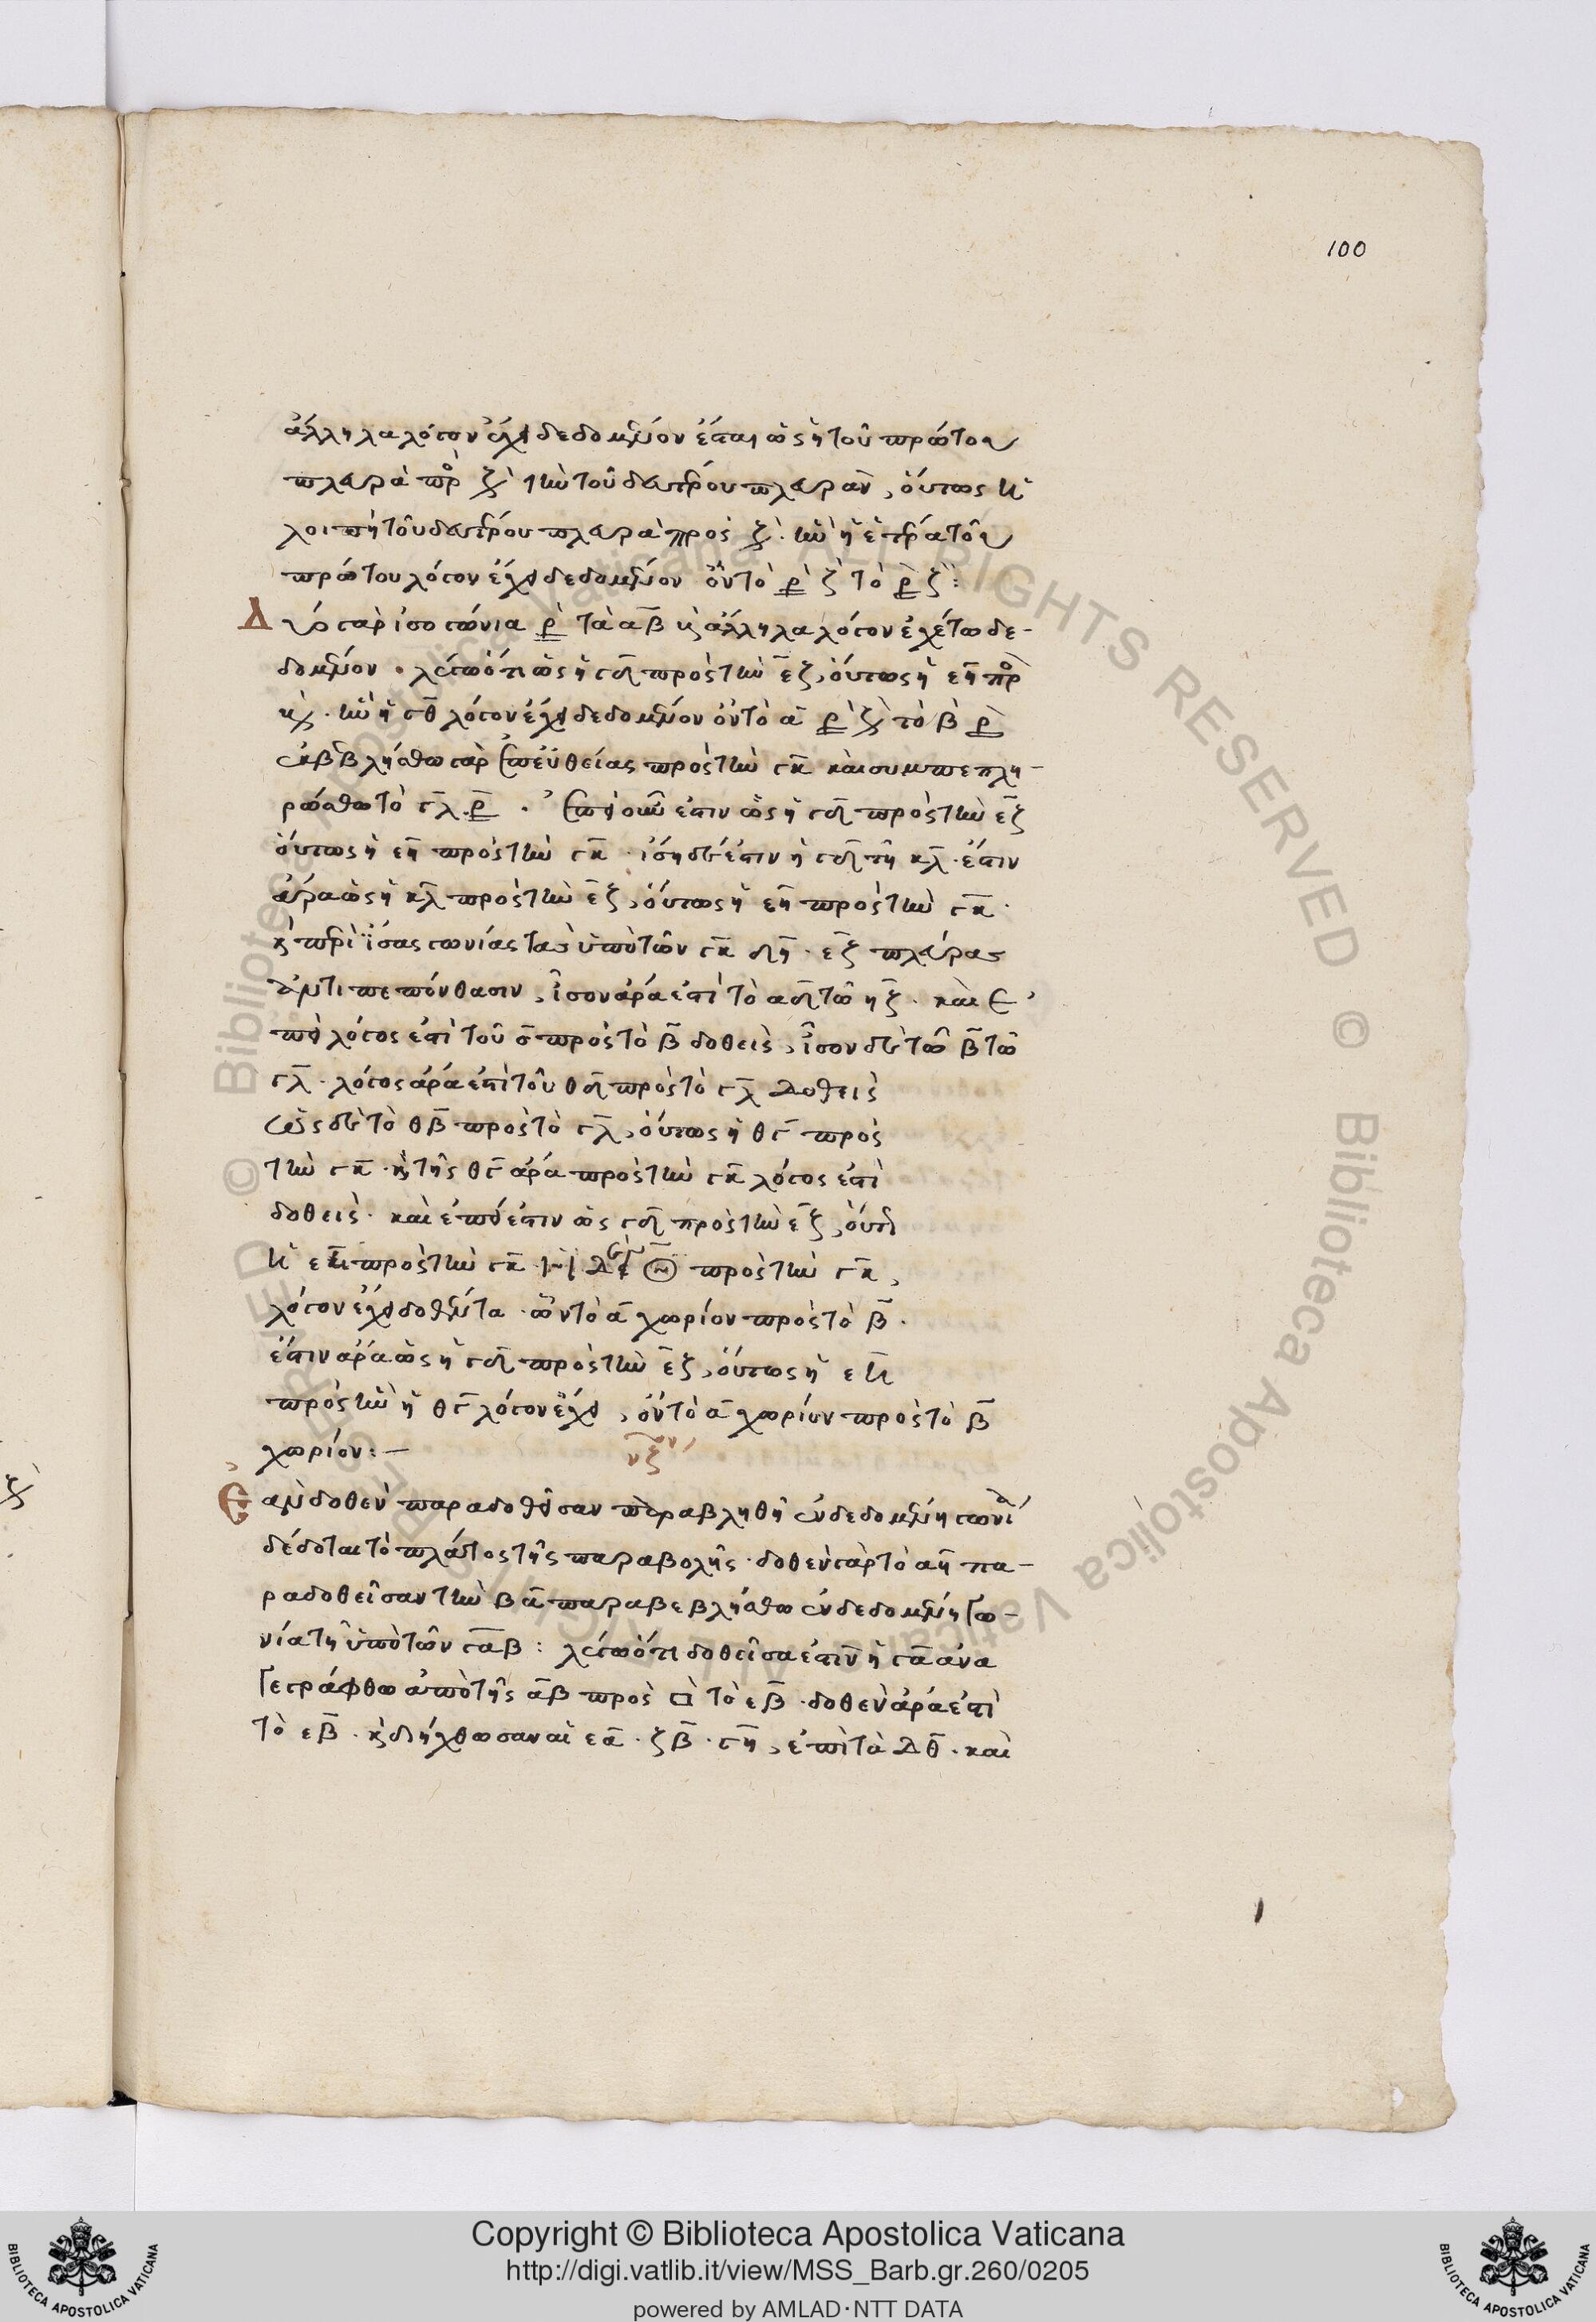 100
ἄλληλα λόγον ἔχει δεδομένον ἔσται ὡς ἡ τοῦ πρώτου
πλευρὰ πρὸς τὴν τοῦ δευτέρου πλευρὰν, οὕτως ἡ
λοιπὴ τοῦ δευτέρου πλευρὰ πρὸς ἣν ἡ ἑτέρα τοῦ
πρώτου λόγον ἔχει δεδομένον ὃν τὸ τὸ
Δύο γὰρ ἰσογώνια τὰ α̅β̅ πρὸς ἄλληλα λόγον ἐχέτω δε-
δομένον · λέγω ὅτι ὡς ἡ γδ̅ πρὸς τὴν ε̅ζ, οὕτως ἡ εη̅ πρὸς
ἣν ἡ γθ̅ λόγον ἔχει δεδομένον ὃν τὸ α̅ πρὸς τὸ β̅
ἐκβεβλήσθω γὰρ ἐπ' εὐθείας πρὸς τὴν γκ̅ καὶ συμπεπλη-
ρώσθω τὸ γ̅λ · ἐπεὶ οὖν ἐστιν ὡς ἡ γδ̅ πρὸς τὴν ε̅ζ
οὕτως ἡ εη̅ πρὸς τὴν γκ̅ · ἴση δέ ἐστιν ἡ γδ̅ τῇ κλ̅ · ἔστιν
ἄρα ὡς ἡ κλ̅ πρὸς τὴν ε̅ζ, οὕτως ἡ εη̅ πρὸς τὴν γκ̅ ·
καὶ περὶ ἴσας γωνίας τὰς ὑπὸ τῶν γκ̅ δη̅ · εζ̅ πλευρας
ἀντιπεπόνθασιν, ἴσον ἄρα ἐστὶ τὸ αδ̅ τῷ ηζ̅ · καὶ ἐ-
πεὶ λόγος ἐστὶ τοῦ σ̅ πρὸς τὸ β̅ δοθεὶς, ἴσον δὲ τῷ β̅ τῷ
γλ̅ · λόγος ἄρα ἐστὶ τοῦ θδ̅ πρὸς τὸ γλ̅ δοθεὶς
ὡς δὲ τὸ θβ̅ πρὸς τὸ γλ̅, οὕτως ἡ θγ̅ πρὸς
τὴν γκ̅ · καὶ τῆς θγ̅ ἄρα πρὸς τὴν γκ̅ λόγος ἐστὶ
δοθεὶς · καὶ ἐπεί ἐστιν ὡς γδ̅ πρὸς τὴν εζ̅, οὕτως
ἡ πρὸς τὴν γκ̅ πρὸς τὴν γκ̅,
λόγον ἔχει δοθέντα · ὃν τὸ α̅ χωρίον πρὸς τὸ β̅ ·
ἔστιν ἄρα ὡς ἡ γδ̅ πρὸς τὴν ε̅ζ, οὕτως ἡ εη̅
πρὸς ἣν ἡ θγ̅ λόγον ἔχει, ὃν τὸ α̅ χωρίον πρὸς τὸ β̅
χωρίον :–
Ἐὰν δοθὲν παρα δοθεῖσαν παραβληθῇ ἐν δεδομένῃ γωνίᾳ
δέδοται τὸ πλάτος τῆς παραβολῆς · δοθὲν γὰρ τὸ αη̅ πα-
ρα δοθεῖσαν τὴν βα̅ παραβεβλήσθω ἐν δεδομένῃ γω-
νίᾳ τῇ ὑπὸ τῶν γα̅β : λέγω ὅτι δοθεῖσα ἐστὶν ἡ γα̅ ἀνα
γεγράφθω ἀπὸ τῆς α̅β πρὸς □ τὸ εβ̅ · δοθὲν ἄρα ἐστὶ
τὸ εβ̅ · καὶ διήχθωσαν αἱ εα̅ · ζβ̅ · γη̅, ἐπὶ τὰ δθ̅ · καὶ
Copyright © Biblioteca Apostolica Vaticana
http://digi.vatlib.it/view/MSS_Barb.gr.260/0205
powered by AMLAD·NTT DATA
BIBLIOTECA APOSTOLICA VATICANA
BIBLIOTECA APOSTOLICA VATICANA
© Biblioteca Apostolica Vaticana ALL RIGHTS RESERVED